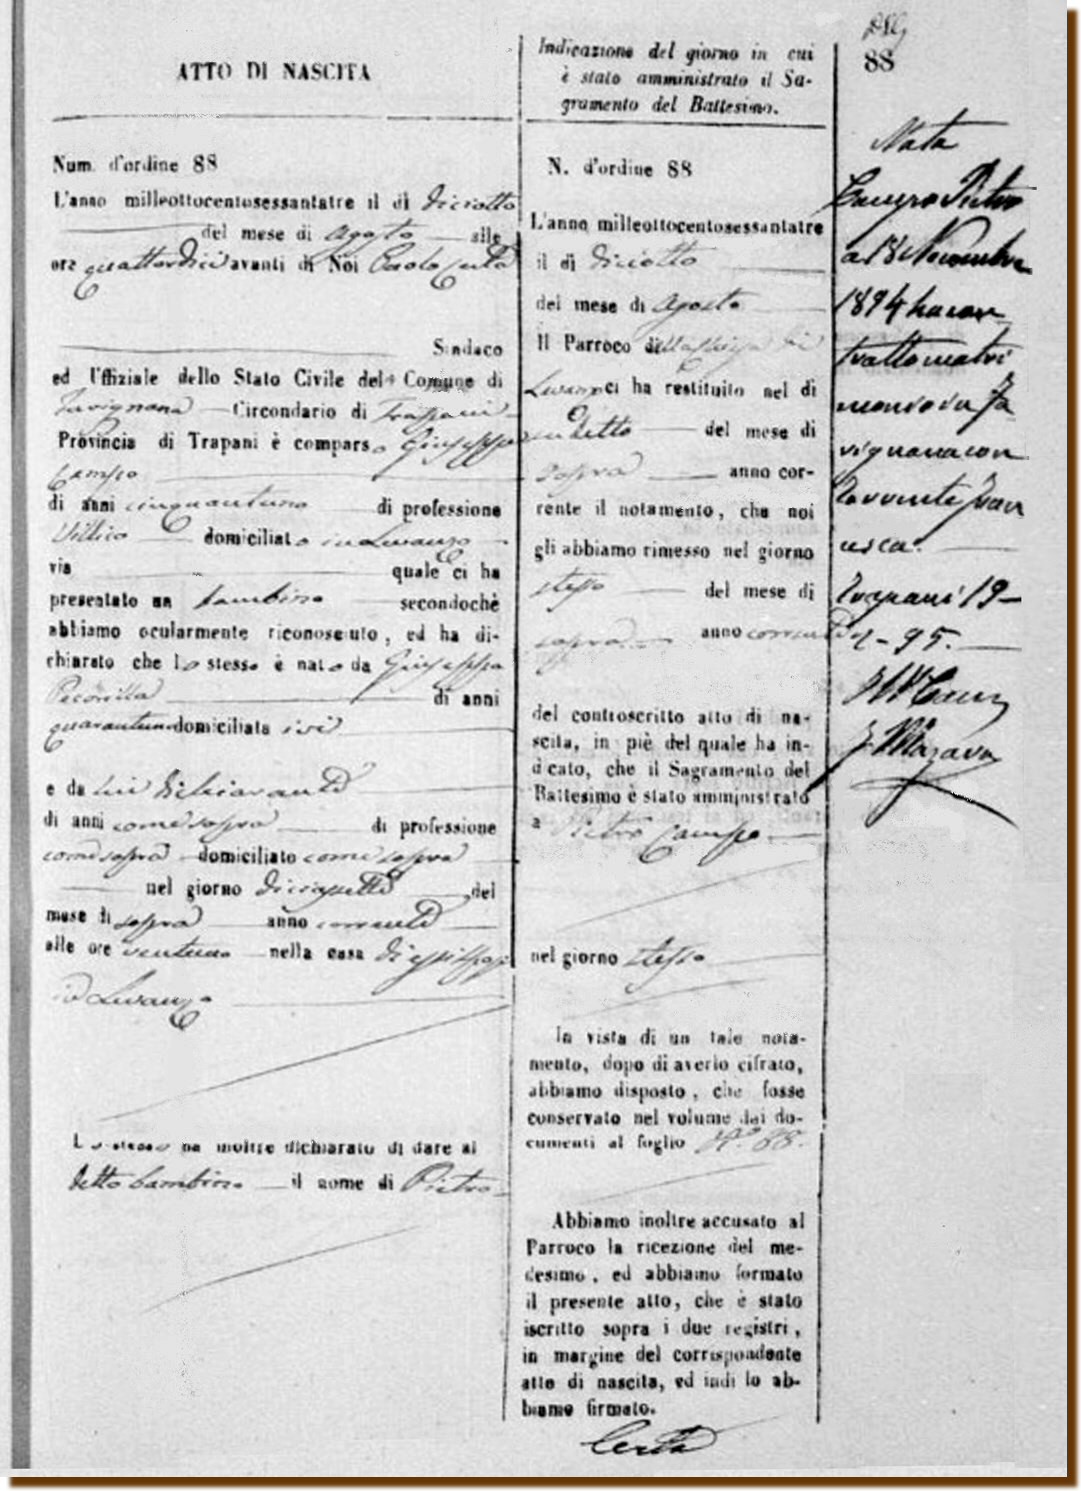 ATTO DI NASCITA
Num. d'ordine 88
L'anno milleottocentosessantatre il di diciotto
del mese di Agosto alle
ore quattordici avanti di Noi Paolo Certa
Sindaco
ed Uffiziale dello Stato Civile del Comune di
Favignana Circondario di Trapani
Provincia di Trapani è comparso Giuseppe
Campo
di anni cinquantuno di professione
Villico domiciliato in Levanzo
via quale ci ha
presentato un bambino secondochè
abbiamo ocularmente riconosciuto, ed ha di-
chiarato che lo stesso è nato da Giuseppa
Peconilla di anni
quarantuno domiciliata ivi
e da lui dichiarante
di anni come sopra di professione
come sopra domiciliato come sopra
nel giorno diciassette del
mese di sopra anno corrente
alle ore ventuno nella casa di
in Levanzo
Lo stesso ha inoltre dichiarato di dare al
detto bambino il nome di Pietro
Indicazione del giorno in cui
è stato amministrato il Sa-
gramento del Battesimo.
N. d'ordine 88
L'anno milleottocentosessantatre
il di diciotto
del mese di Agosto
Il Parroco della Chiesa di
Levanzo ci ha restituito nel di
sudetto del mese di
sopra anno cor-
rente il notamento, che noi
gli abbiamo rimesso nel giorno
stesso del mese di
sopra anno corrente
del controscritto atto di na-
scita, in piè del quale ha in-
dicato, che il Sagramento del
Battesimo è stato amministrato
a Pietro Campo
nel giorno stesso
In vista di un tale nota-
mento, dopo di averlo cifrato,
abbiamo disposto, che fosse
conservato nel volume dei do-
cumenti al foglio N.° 88.
Abbiamo inoltre accusato al
Parroco la ricezione del me-
desimo, ed abbiamo formato
il presente atto, che è stato
iscritto sopra i due registri,
in margine del corrispondente
atto di nascita, ed indi lo ab-
biamo firmato.
Certa
88
Nota
Campo Pietro
a 18 Novembre
1894 ha con
tratto matri
monio in Fa
vignana con
Torrente Fran
cesca.
Trapani 19
2-95.